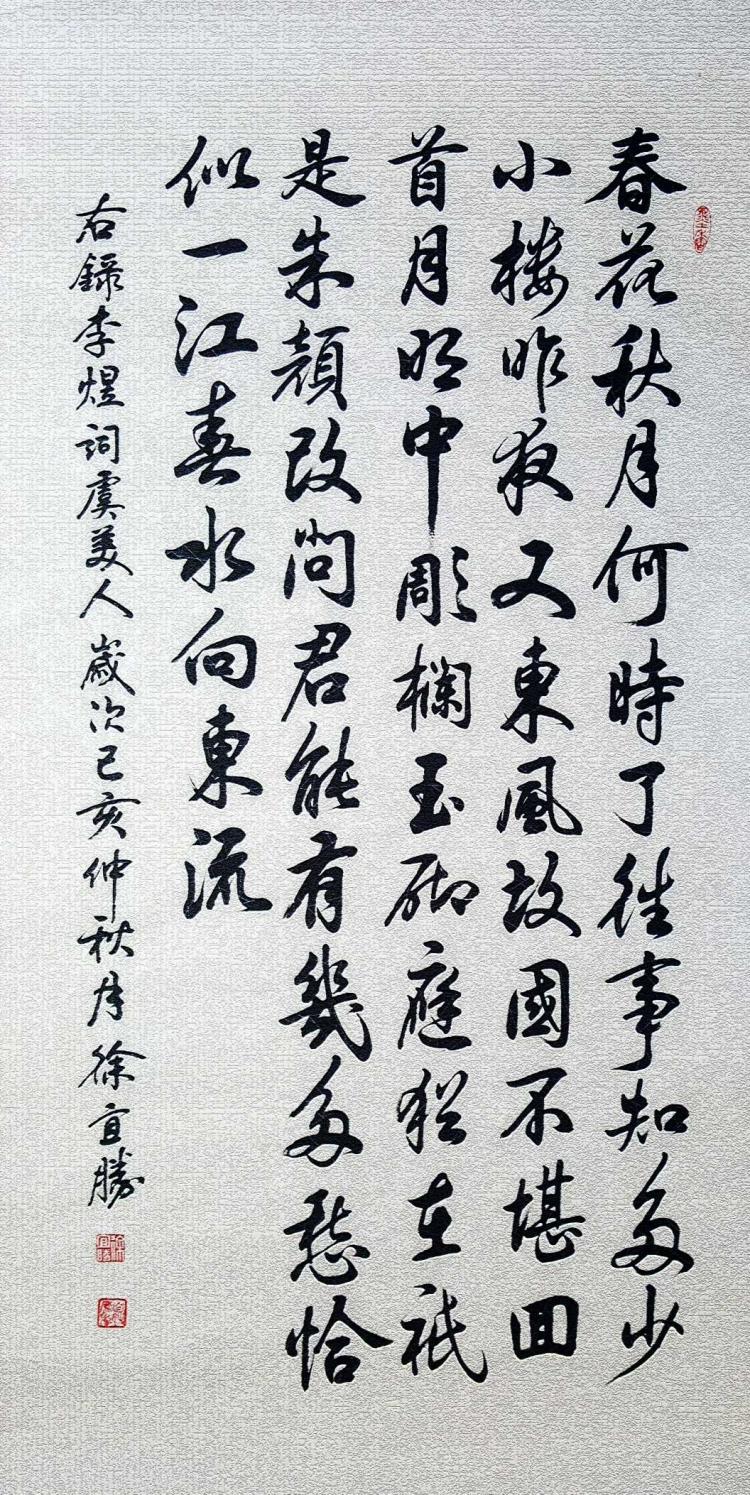 春花秋月何時了往事知多少
小樓昨夜又東風故國不堪回
首月明中彫欄玉砌庭猶在祇
是朱顏改問君能有幾多愁恰
似一江春水向東流
右錄李煜詞虞美人歲次己亥仲秋月徐宜勝